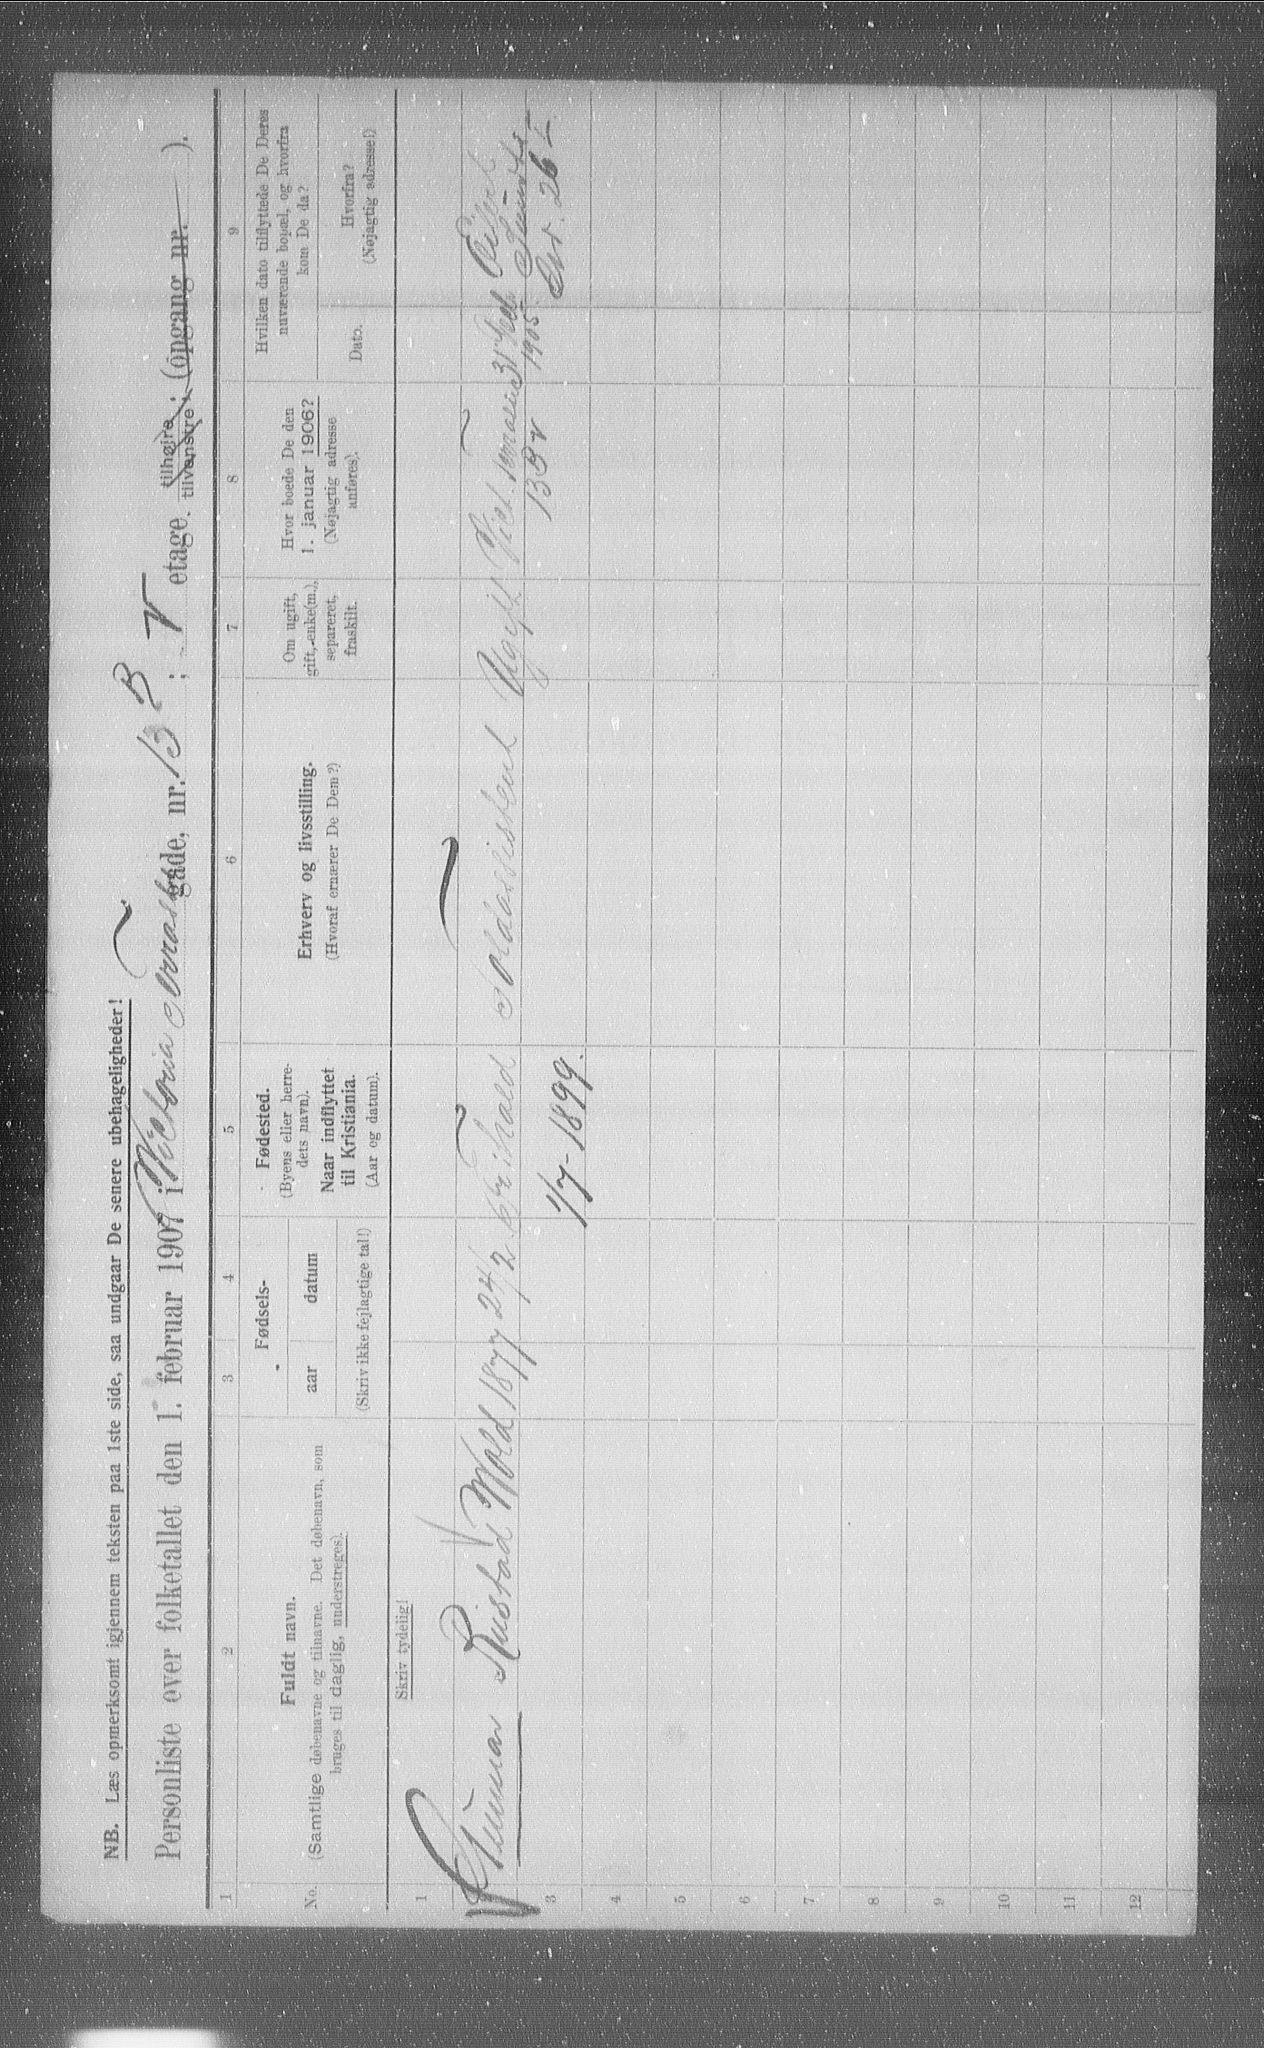 NB. Læs opmerksomt igjennem teksten paa 1ste side, saa undgaar De senere ubehageligheder!
Personliste over folketallet den 1. februar 1907 i Victoria Terrasse gade, nr. 13 B ; V etage. tilhøire tilvenstre ; (opgang nr. ).
1 2 3 4 5 6 7 8 9
No.
Fuldt navn.
(Samtlige døbenavne og tilnavne. Det døbenavn, som
bruges til daglig, understreges).
Fødsels-
aar datum
(Skriv ikke fejlagtige tal!)
Fødested.
(Byens eller herre-
dets navn).
Naar indflyttet
til Kristiania.
(Aar og datum).
Erhverv og livsstilling.
(Hvoraf ernærer De Dem?)
Om ugift,
gift, enke(m.),
separeret,
fraskilt.
Hvor boede De den
1. januar 1906?
(Nøjagtig adresse
anføres).
Hvilken dato tilflyttede De Deres
nuværende bopæl, og hvorfra
kom De da?
Dato.
Hvorfra?
(Nøjagtig adresse!)
Skriv tydelig!
1
2 Gunnar Rustad Wold 1877 24/2 Fr.hald Toldassistent Ugift Vict. terrasse 31
3 1/7-1899. 13 B V 1905 26 I
4
5
6
7
8
9
10
11
12